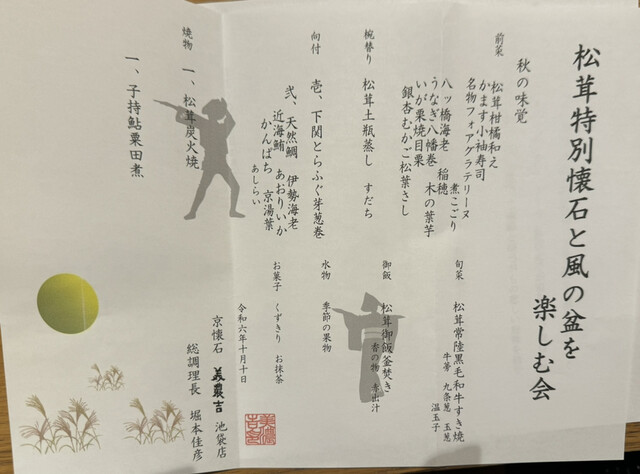 松茸特別懐石と風の盆を
楽しむ会
秋の味覚
前菜
松茸柑橘和え
かます小袖寿司
名物フォアグラテリーヌ
煮こごり
八ッ橋海老 稲穂
うなぎ八幡巻 木の葉芋
いが栗焼目栗
銀杏むかご松葉さし
椀替り 松茸土瓶蒸し すだち
向付 壱、下関とらふぐ芽葱巻
弐、天然鯛 伊勢海老
近海鮪 あおりいか
かんぱち 京湯葉
あしらい
焼物 一、松茸炭火焼
一、子持鮎粟田煮
旬菜 松茸常陸黒毛和牛すき焼
牛蒡 九条葱 玉葱
温玉子
御飯 松茸御飯釜焚き
香の物 赤出汁
水物 季節の果物
お菓子 くずきり お抹茶
令和六年十月十日
京懐石 美濃吉 池袋店
総調理長 堀本佳彦
美濃吉